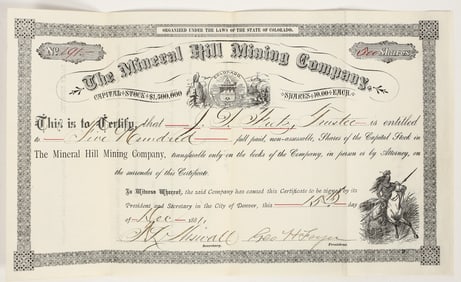 ORGANIZED UNDER THE LAWS OF THE STATE OF COLORADO.
No. 191 500 Shares
The Mineral Hill Mining Company.
CAPITAL STOCK $1,500,000 SHARES $10.00 EACH.
This is to Certify that J. Trustee is entitled
to Five Hundred full paid, non-assessable, Shares of the Capital Stock in
The Mineral Hill Mining Company, transferable only on the books of the Company, in person or by Attorney, on
the surrender of this Certificate.
In Witness Whereof, the said Company has caused this Certificate to be signed by its
President and Secretary in the City of Denver, this 15th day
of Dec 1881.
Geo H
Secretary. President.